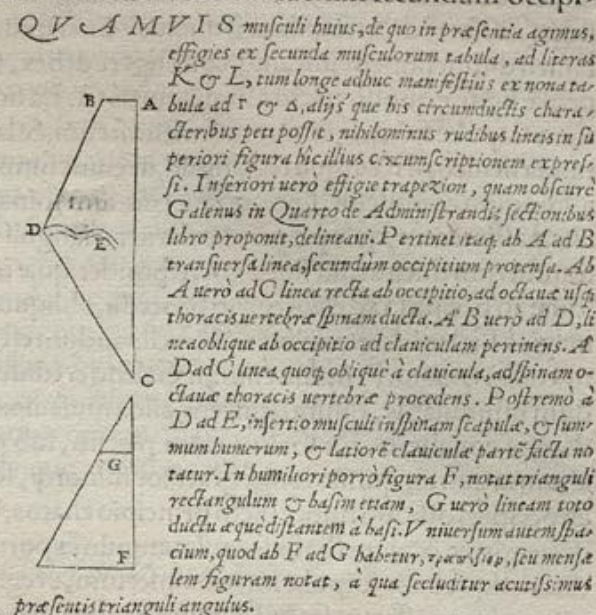 QVAMVIS musculi huius, de quo in præsentia agimus,
effigies ex secunda musculorum tabula, ad literas
K & L, tum longe adhuc manifestiùs ex nona ta-
bula ad Γ & Δ, alijs´que his circumductis chara-
cteribus peti possit, nihilominus rudibus lineis in su
periori figura hîc illius circumscriptionem expres-
si. Inferiori uerò effigie trapezion, quam obscurè
Galenus in Quarto de Administrandis sectionibus
libro proponit, delineaui. Pertinet itaq; ab A ad B
transuersa linea, secundùm occipitium protensa. Ab
A uerò ad C linea recta ab occipitio, ad octauæ usq;
thoracis uertebræ spinam ducta. A´ B uerò ad D, li
nea oblique ab occipitio ad clauiculam pertinens. A´
D ad C linea quoq; obliquè à clauicula, ad spinam o-
ctauæ thoracis uertebræ procedens. Postremò à
D ad E, insertio musculi in spinam scapulæ, & sum-
mum humerum, & latiorē clauiculæ partē facta no
tatur. In humiliori porrò figura F, notat trianguli
rectangulum & basim etiam, G uerò lineam toto
ductu æquè distantem à basi. Vniuersum autem spa-
cium, quod ab F ad G habetur, seu mensæ
lem figuram notat, à qua secluditur acutissimus
præsentis trianguli angulus.
B A
D
E
C
G
F